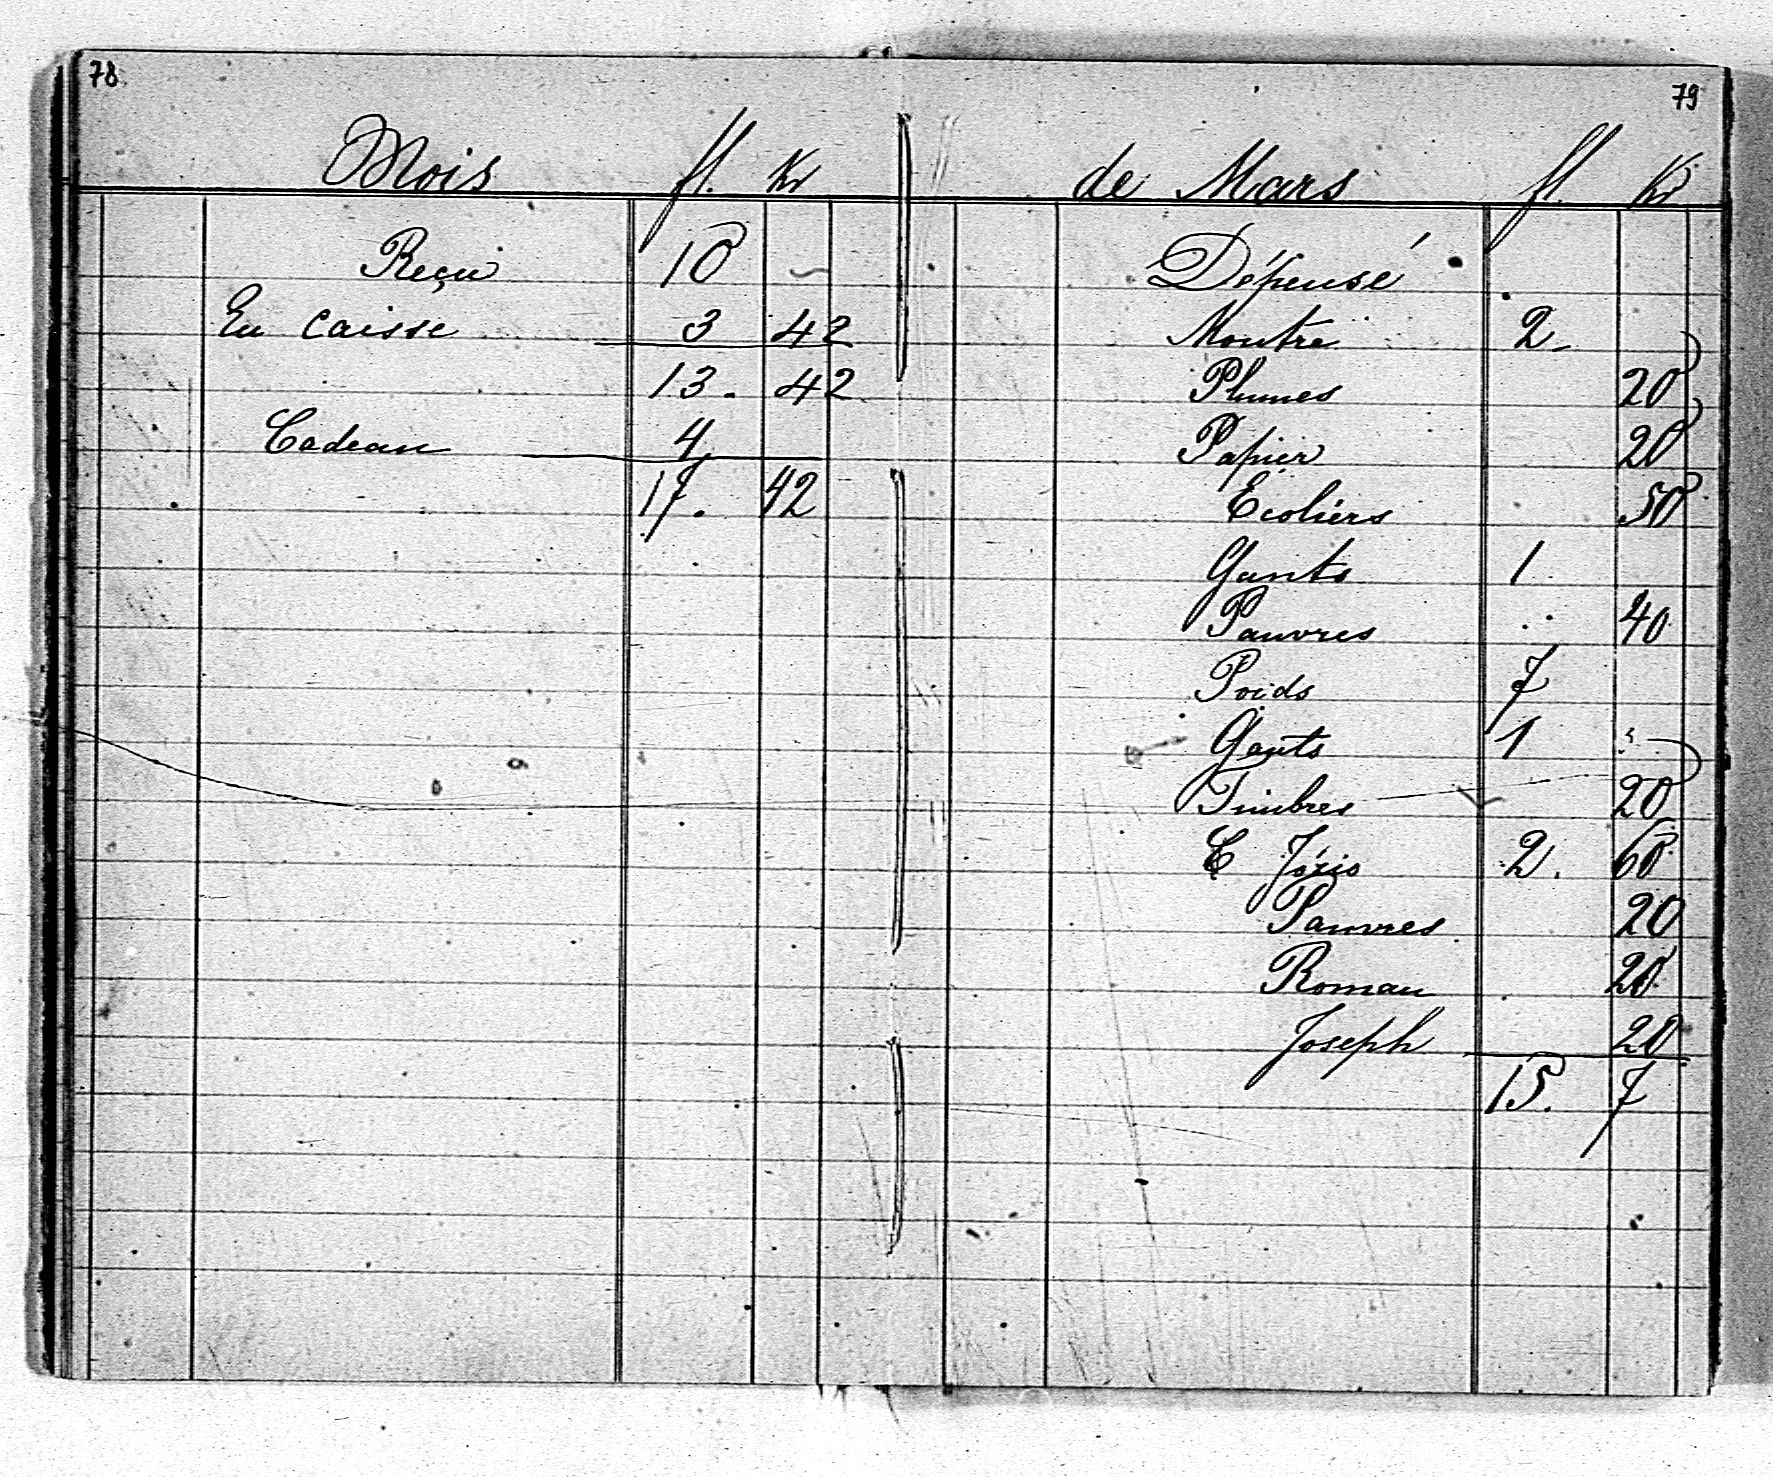 78
Mois fl. Kr
Reçu 10 –
En Caisse 3 42
13. 42
Cadeau 4
17. 42
79
de Mars fl. Kr
Dépensé
Montre 2.
Plumes 20
Papier 20
Ecoliers 50
Gants 1
Pauvres 40
Poids 7
Gants 1
Timbres 20
2. 60
Pauvres 20
Roman 20
Joseph 20
15. 7